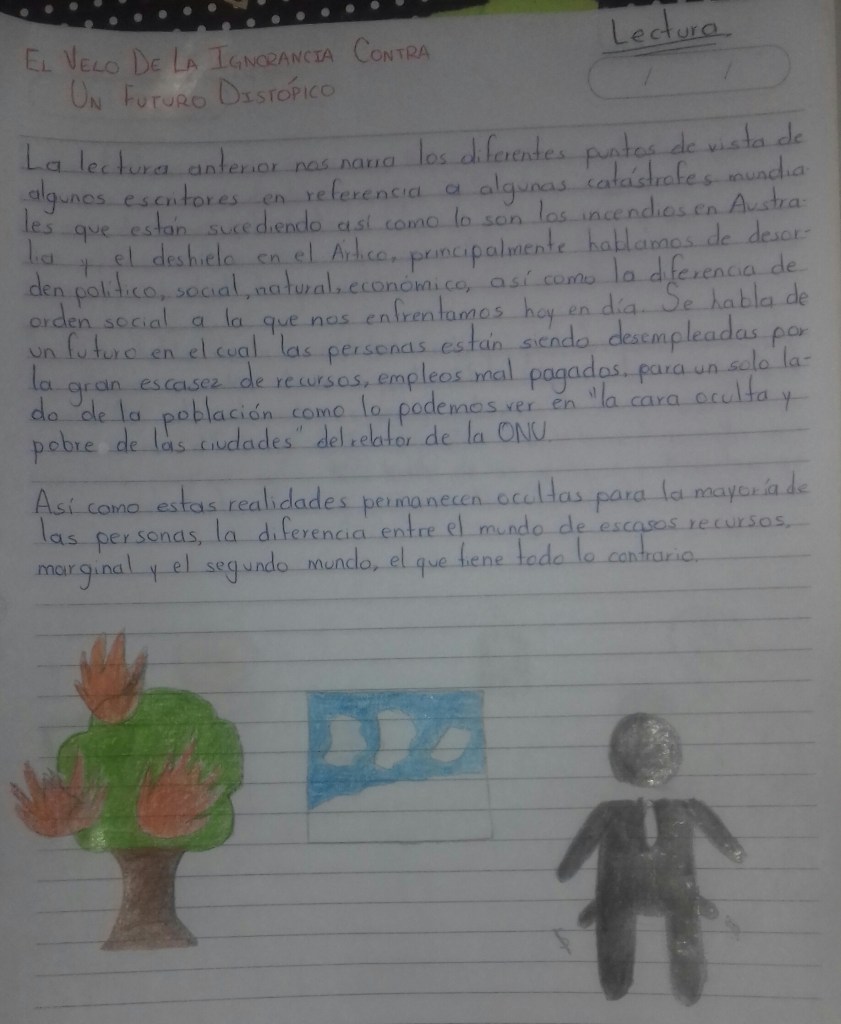 Lectura
EL VELO DE LA IGNORANCIA CONTRA
UN FUTURO DISTÓPICO
La lectura anterior nos narra los diferentes puntos de vista de
algunos escritores en referencia a algunas catástrofes mundia
les que están sucediendo así como lo son los incendios en Austra-
lia y el deshielo en el Ártico, principalmente hablamos de desor-
den político, social, natural, económico, así como la diferencia de
orden social a la que nos enfrentamos hoy en día. Se habla de
un futuro en el cual las personas están siendo desempleadas por
la gran escasez de recursos, empleos mal pagados, para un solo la-
do de la población como lo podemos ver en "la cara oculta y
pobre de las ciudades" del relator de la ONU
Así como estas realidades permanecen ocultas para la mayoría de
las personas, la diferencia entre el mundo de escasos recursos,
marginal y el segundo mundo, el que tiene todo lo contrario.